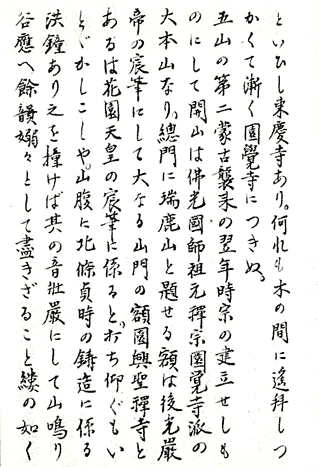 といひし東慶寺あり。何れも木の間に遙拜しつ
かくて漸く圓覺寺につきぬ。
五山の第二蒙古襲來の翌年時宗の建立せしも
のにして開山は佛光國師祖元禪宗圓覺寺派の
大本山なり。總門に瑞鹿山と題せる額は後光嚴
帝の宸筆にして大なる山門の額圓興聖禪寺と
あるは花園天皇の宸筆に係ると。打ち仰ぐもい
とゞかしこしや。山腹に北條貞時の鑄造に係る
洪鐘あり之を撞けば其の音壯嚴にして山鳴り
谷應へ餘韻嫋々として盡きざること縷の如く